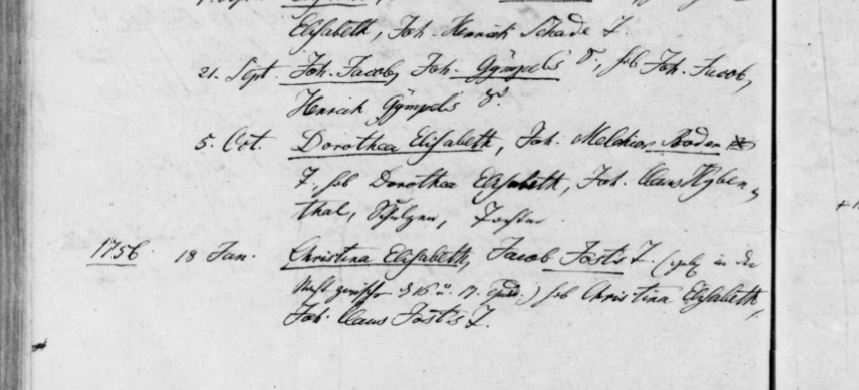 Elisabeth, Joh. Henrich Schade T.
21. Sept. Joh. Jacob, Joh. Gÿmpel's S., Joh. Jacob,
Henrich Gÿmpel's S.
5. Oct. Dorothea Elisabeth, Joh. Melchior Boden
T. Dorothea Elisabeth, Joh. Claus Hÿben-
thal, Schulzen, Tochter.
1756. 18 Jan. Christina Elisabeth, Jacob Jost's T. ( in der
Nacht zwischen d 16 u. 17. ) Christina Elisabeth,
Joh. Claus Jost's T.